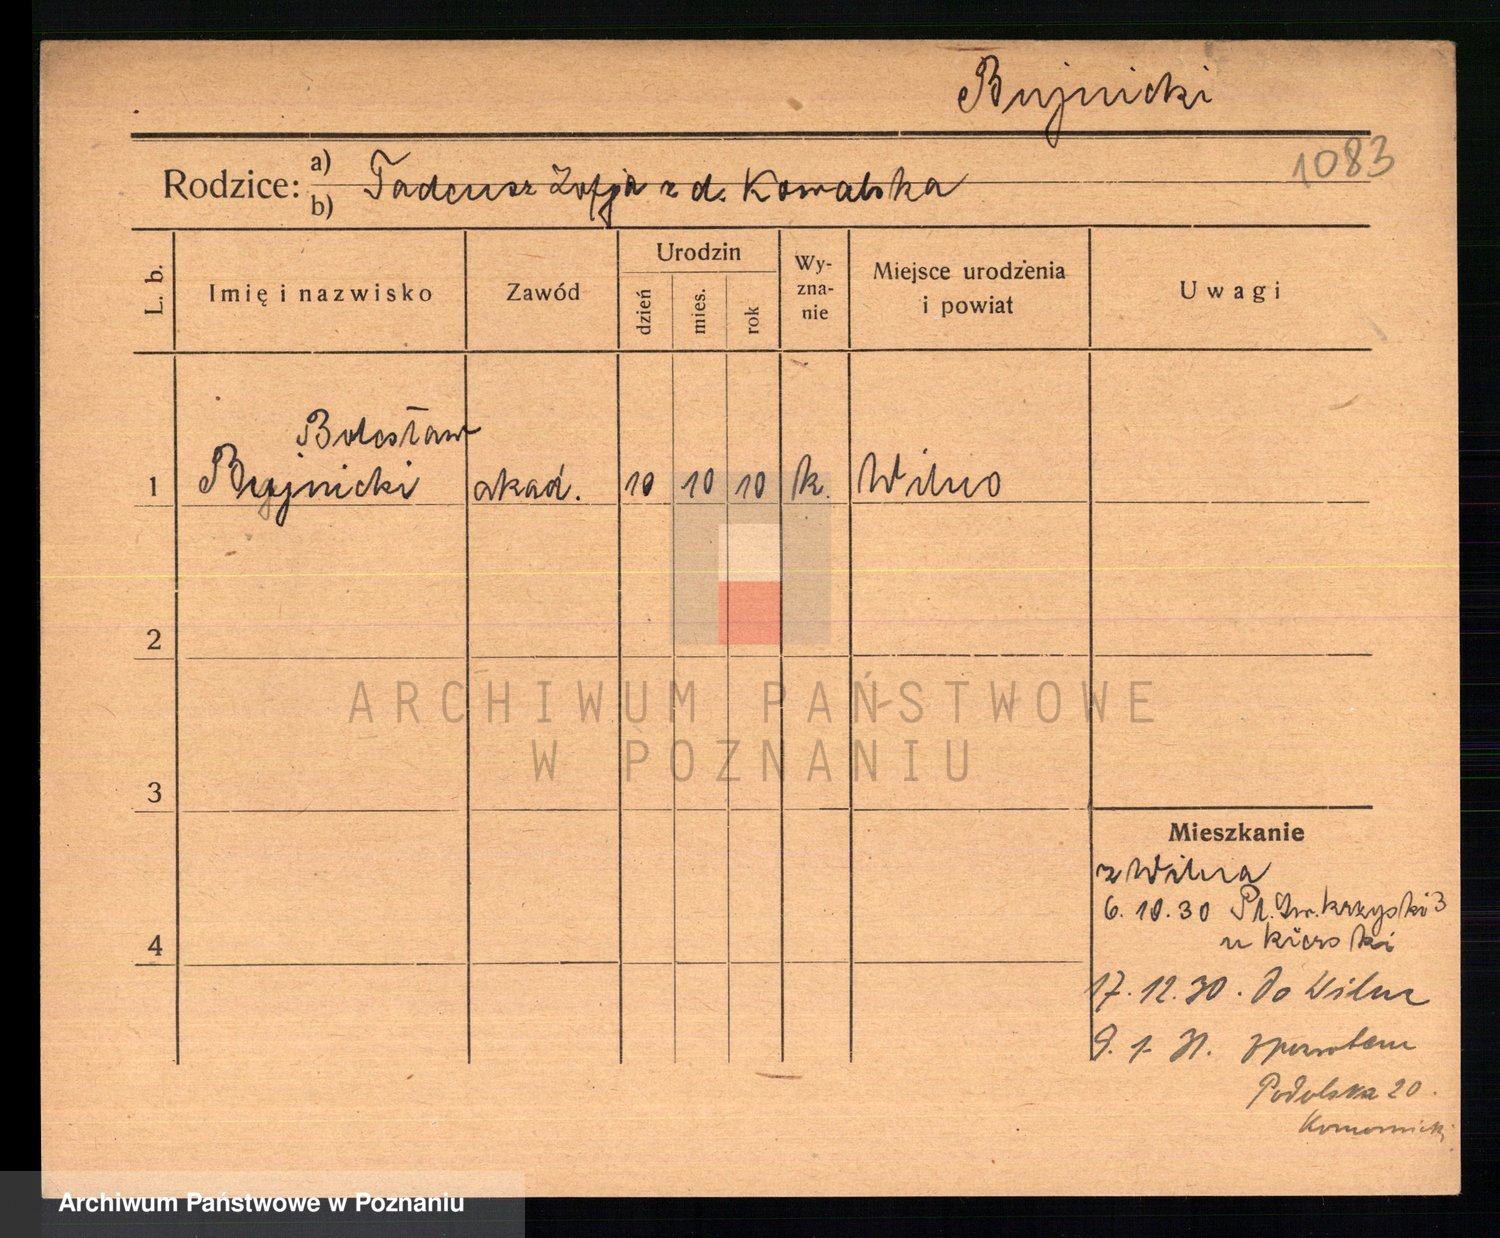 Bujnicki
1083
Rodzice: a) b) Tadeusz Zofja z d. Kowalska
L. b.
Imię i nazwisko
Zawód
Urodzin
dzień
mies.
rok
Wy-
zna-
nie
Miejsce urodzenia
i powiat
Uwagi
Bolesław
1 Bujnicki akad. 10 10 10 k. Wilno
2
ARCHIWUM PAŃSTWOWE
W POZNANIU
3
Mieszkanie
z Wilna
6. 10. 30 Pl. Św. krzyski 3
u
4
17. 12. 30. do Wilna
9. 1. 31. zpowrotem
Podolska 20.
Komornicki
Archiwum Państwowe w Poznaniu